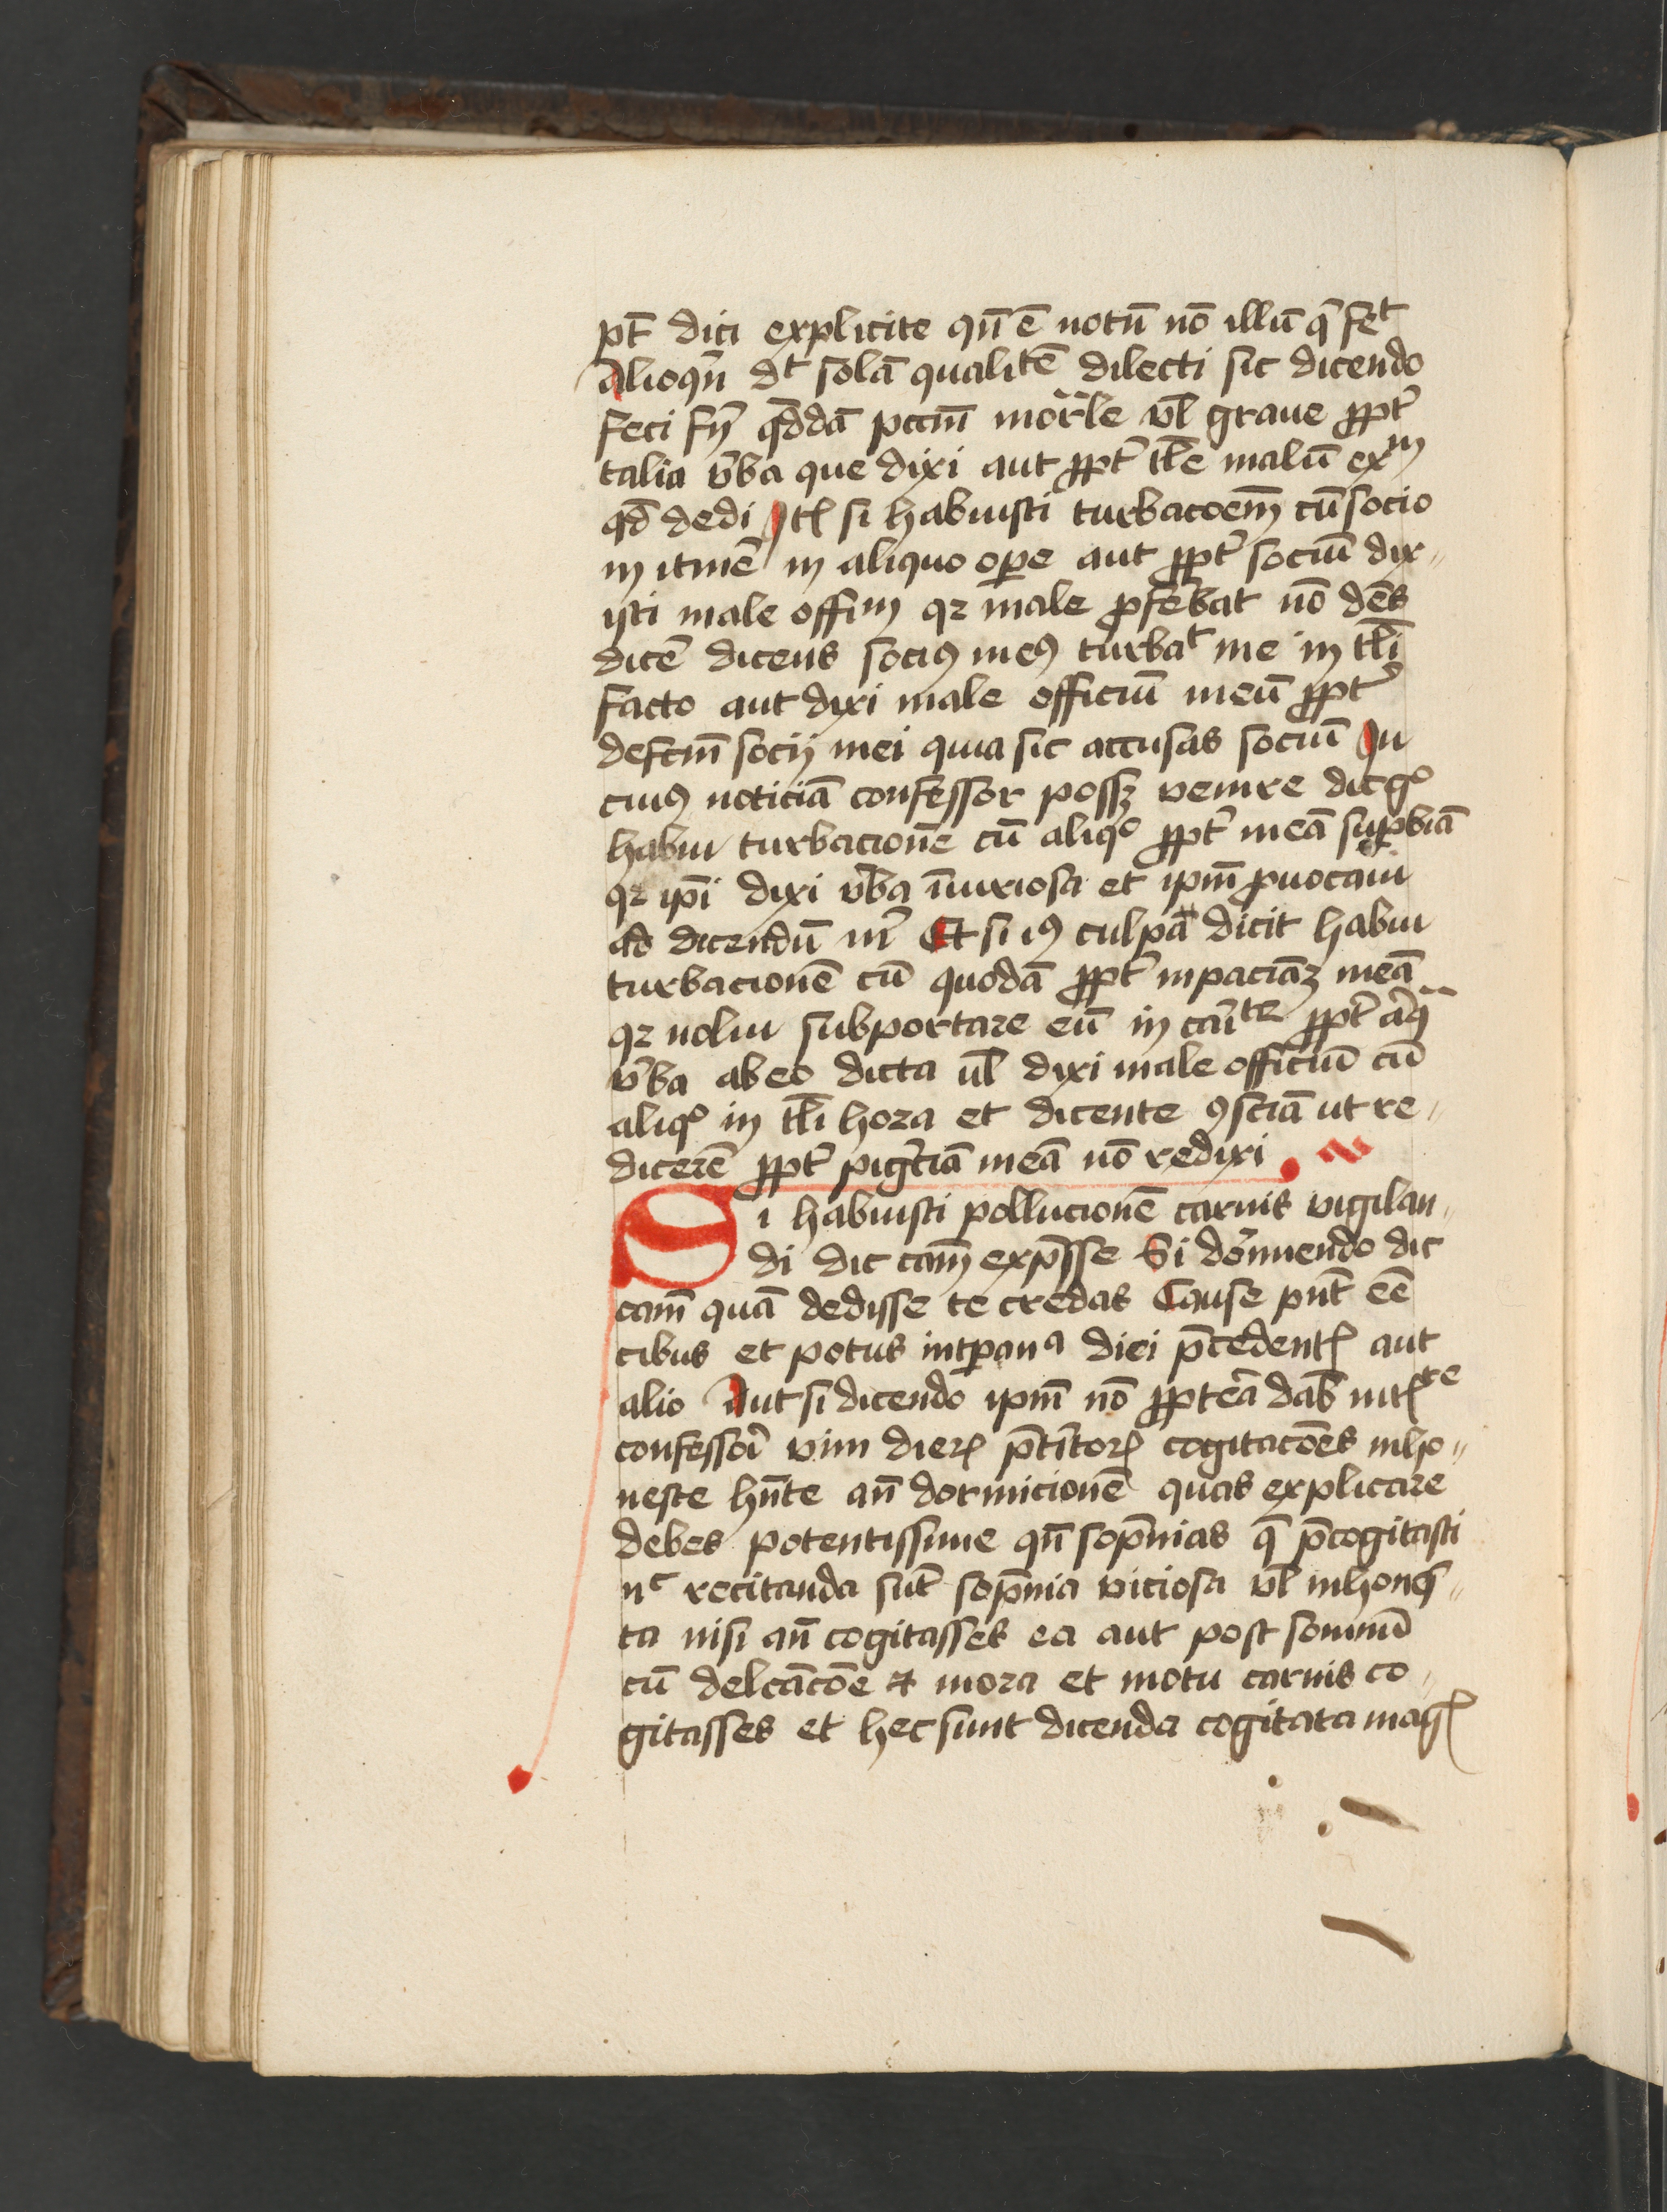 pt̄ dici explicite qn̄ ē notū nō illū q̄ fet
Alioqn̄ dt solā qualitē dilecti sic dicendo
feci fr̄ qd̄dā pccm̄ mortle vl̄ graue ꝓpt̄
talia v̄ba que dixi aut ꝓpt̄ tl̄e malū exm
qd̄ dedi Itē si habuisti turbacoem̄ cū socio
in itinē in aliquo oꝑe aut ꝓpt̄ sociū dix„
isti male offim qꝛ male ꝓferebat nō debs
dicē dicens sociꝰ meꝰ turbat me in tl̄i
facto aut dixi male officiū meū ꝓpt̄
defctm̄ socij mei quia sic accusas sociū In
cuiꝰ noticiā confessor possꝫ venire dic gͦ
habui turbacionē cū aliqͦ ꝓpt̄ meā suꝑbiā
qꝛ ip̄i dixi v̄ba iniuriosa et ipm̄ ꝓuocaui
ad dicendū m̄ Et si iꝰ culpā dicit habui
turbacionē cū quodā ꝓpt̄ inpaciāꝫ meā
qꝛ nolui subportare eū in caritte ꝓpt̄ aliq̄
v̄ba ab eo dicta ul̄ dixi male officiū cū
aliqͦ in tl̄i hora et dicente ꝯsciā ut re„
dicerē ꝓpt̄ pigr̄ciā meā nō redixi
Si habuisti pollucionē carnis vigilan„
di dic cam̄ exp̄sse Si dormiendo dic
cam̄ quā dedisse te credas Cause pn̄t eē
cibus et potus intꝑana diei p̄cedentꝭ aut
alio Aut si dicendo ipm̄ nō ꝓpterea dab̄
confessori vim dierꝝ p̄t̄itorꝝ cogitacōes inho„
neste hn̄te an̄ dormicionē quas explicare
debes potentissime qn̄ sopnias q̄ p̄cogitasti
nc recitanda sūt sopnia viciosa vl̄ inhones„
ta nisi an̄ cogitasses ea aut post somnū
cū delc̄acōe ⁊ mora et motu carnis co„
gitasses et hec sunt dicenda cogitata magꝭ